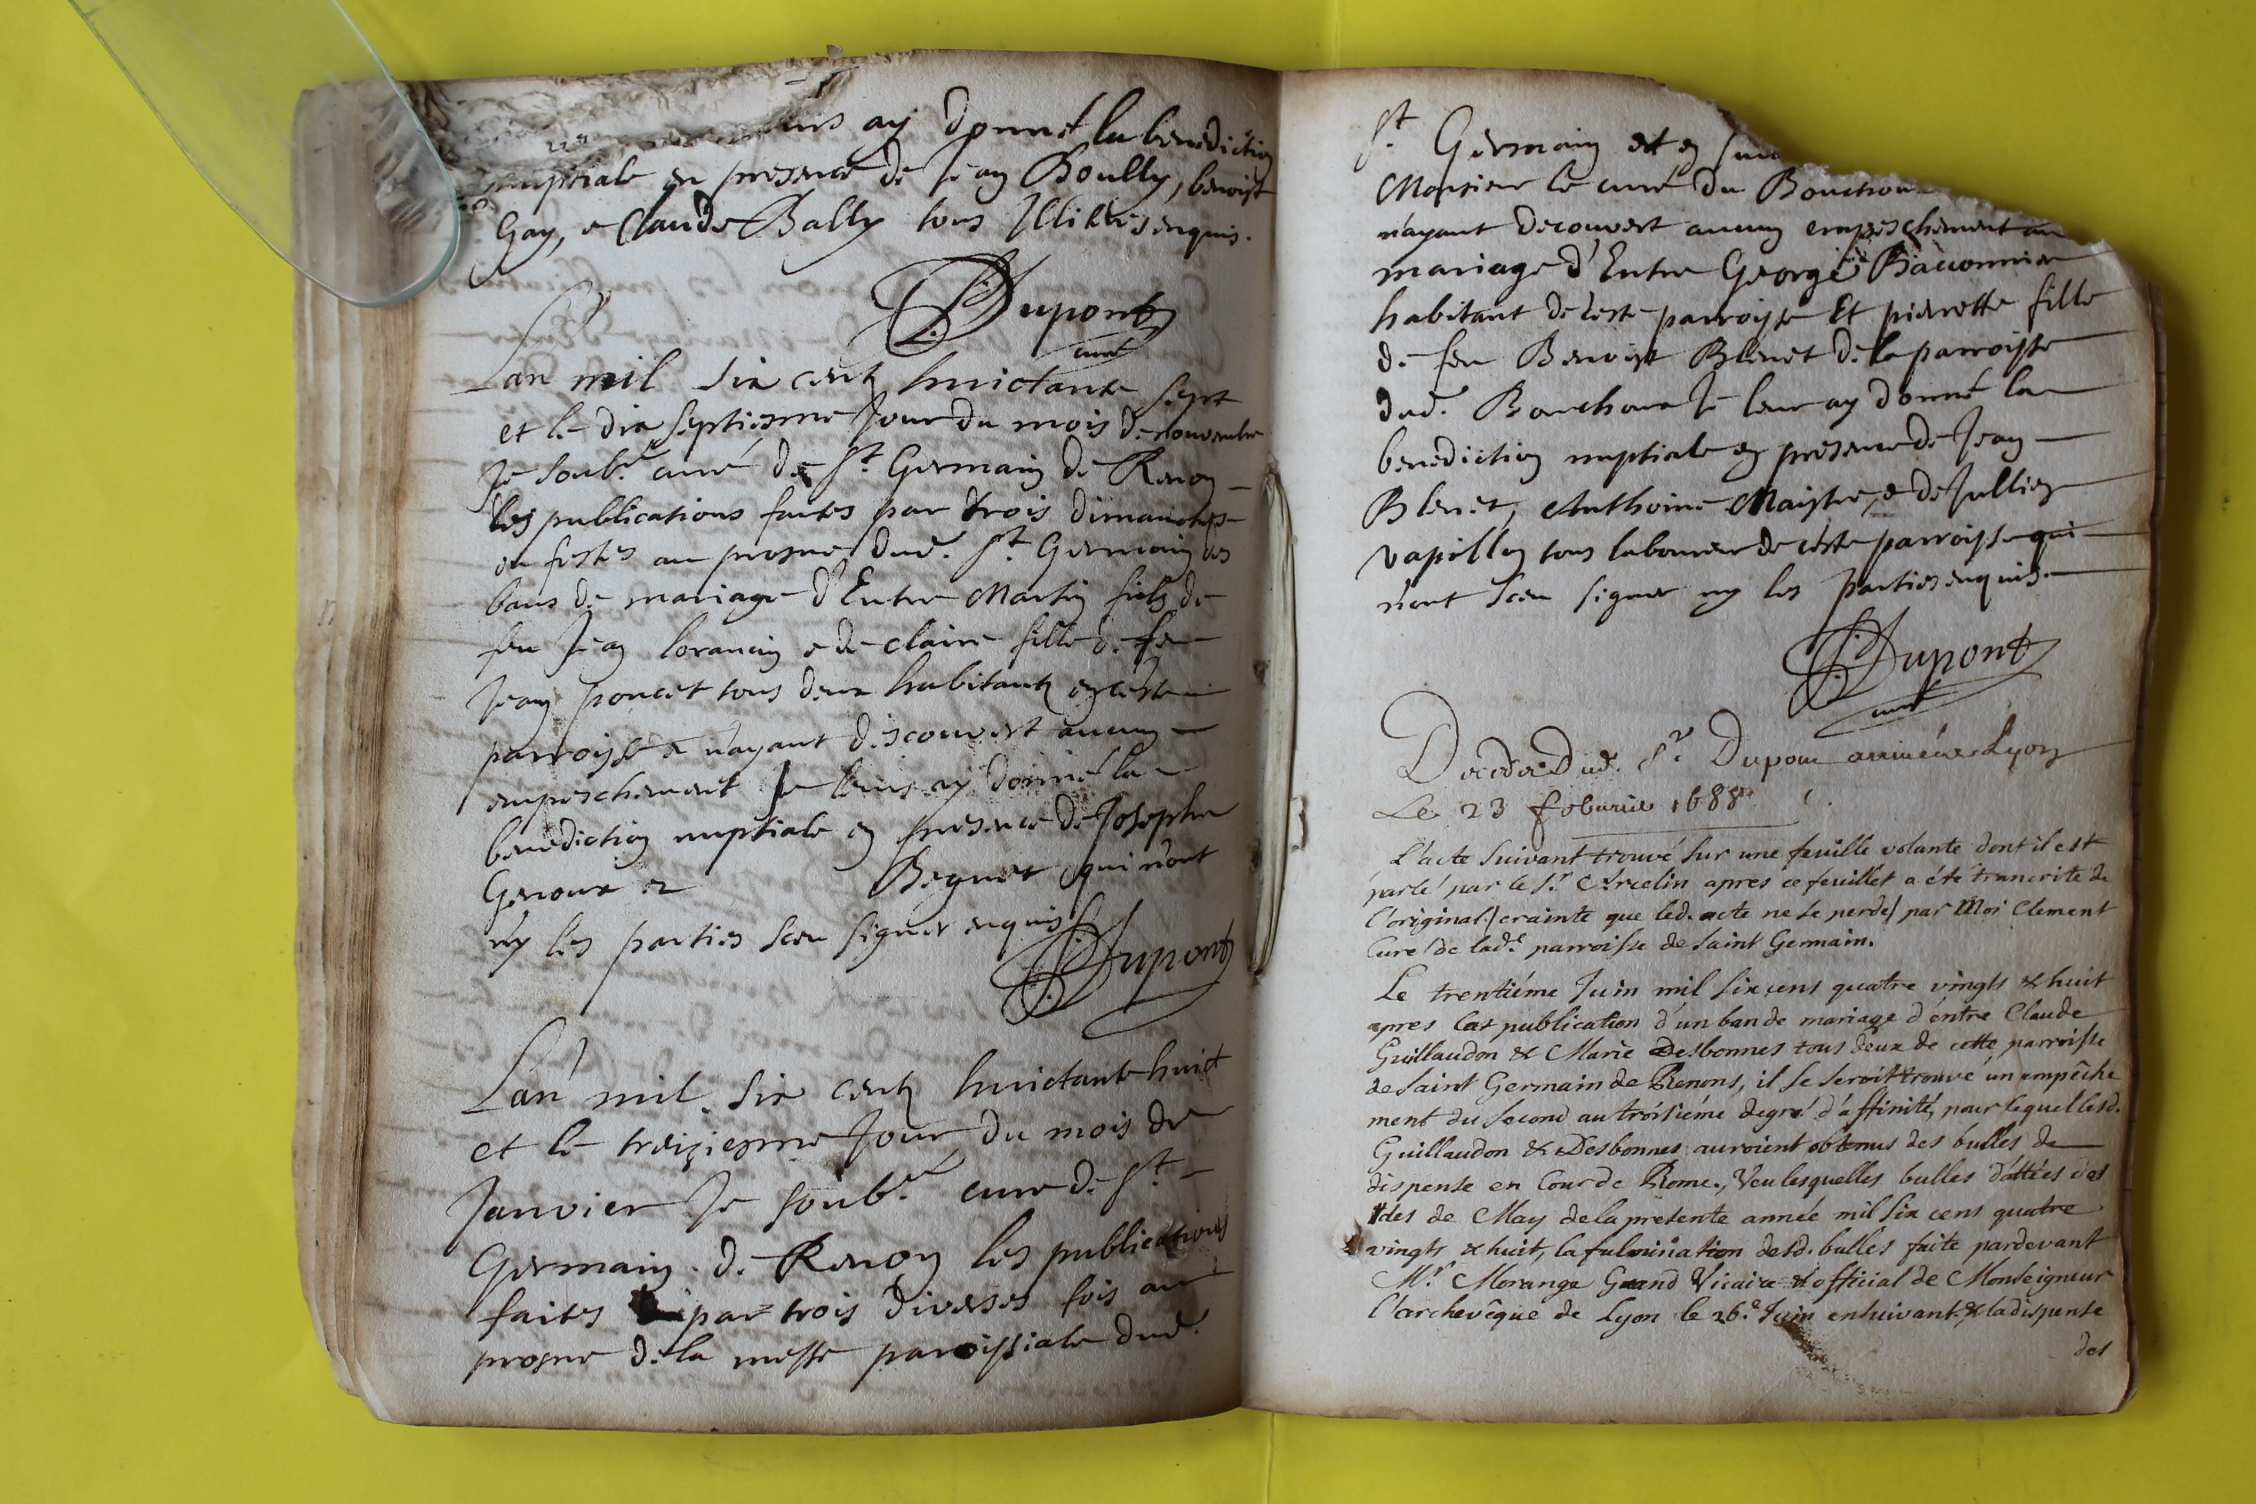 ay donné la benediction
nuptiale en presence de Jean Boully, benoist
Gay, e Claude Bally tous Illiterés enquis.
Dupont
curé
Lan mil six centz huictante sept
et le dix septiesme Jour du mois de novembre
Je soub.é curé de St Germain de Renon
les publications faites par trois dimanches
ou festes au prosne dud. St Germain des
bans de mariage d'Entre Martin filz de
feu Jean lorancin e de claire fille de feu
Jean poncet tous deux habitantz en ceste
parroisse e n'ayant descouvert aucun
empeschement Je leurs ay donné la
benediction nuptiale en presence de Josephe
Genoux e Beguet qui n'ont
ny les parties sceu signer enquis
Dupont
Lan mil six centz huictante huict
et le treiziesme Jour du mois de
Janvier Je soub.é curé de St
Germain de Renon les publications
faites par trois diverses fois au
prosne de la messe paroissiale dud.
St Germain et en
Monsieur le curé du Bouchoux
n'ayant decouvert aucun empeschement au
mariage d'Entre George Baconnier
habitant de ceste parroisse Et pierrette fille
de feu Benoist Blenet de la parroisse
dud. Bouchoux Je leur ay donné la
benediction nuptiale en presence de Jean
Blenet, Anthoine Maistre, e de Jullien
vapillon tous laboureur de ceste parroisse qui
n'ont sceu signer ny les parties enquis.
Dupont
curé
Deceds Dud. Sr Dupont arrivé a Lyon
Le 23 feburier 1688
L'acte suivant trouvé sur une feuille volante dont il est
parlé par le Sr Arcelin apres ce feuillet a été transcrite de
l'original (crainte que led. acte ne se perde) par Moi Clement
Curé de lad.e parroisse de Saint Germain.
Le trentiéme Juin mil six cens quatre vingts & huit
apres la publication d'un ban de mariage d'entre Claude
Guillaudon & Marie Desbonnes tous deux de cette parroisse
de Saint Germain de Renons, il se seroit trouvé un empêche
ment du second au troisiéme degré d'affinité, pour lequel lesd.
Guillaudon & Desbonnes auroient obtenus des bulles de
dispense en Cour de Rome, Veu lesquelles bulles dattées des
Ides de May de la presente année mil six cens quatre
vingts & huit, la fulmination desd. bulles faite pardevant
Mr. Morange Grand Vicaire & official de Monseigneur
l'archevêque de Lyon le 26.e Juin ensuivant & la dispense
des